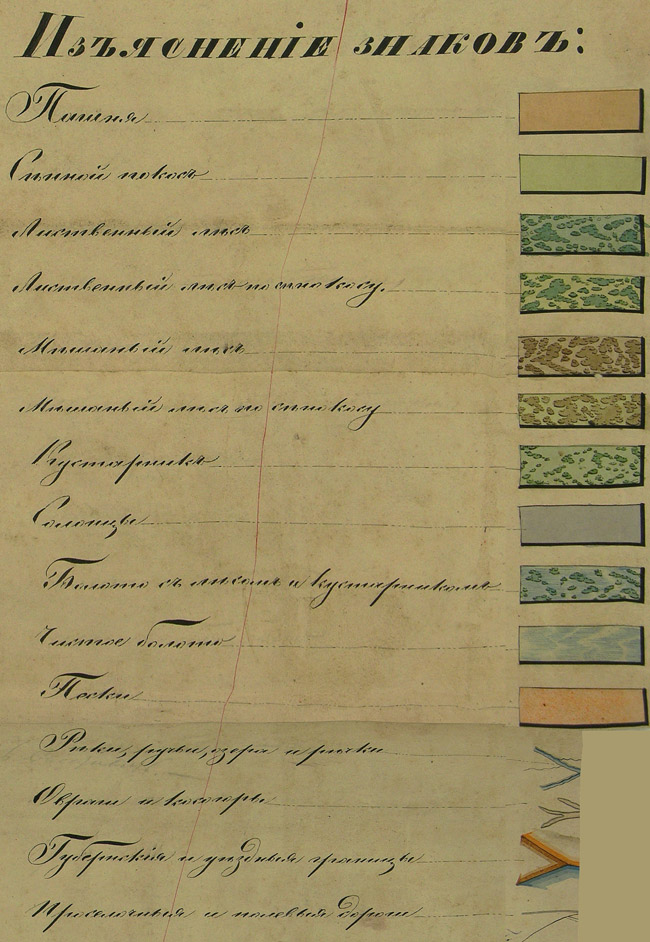 Изъясненіе знаковъ:
Пашня
Сѣнной покосъ
Лиственный лѣсъ
Лиственный лѣсъ по сѣнокосу.
Мѣшаный лѣсъ
Мѣшаный лѣсъ по сѣнокосу
Кустарникъ
Солонцы
Болото съ лѣсомъ и кустарникомъ
Чистое болото
Пески
Рѣки, ручьи, озера и рѣчки
Овраги и косогоры
Губернскія и уѣздныя границы
Проселочныя и полевыя дороги